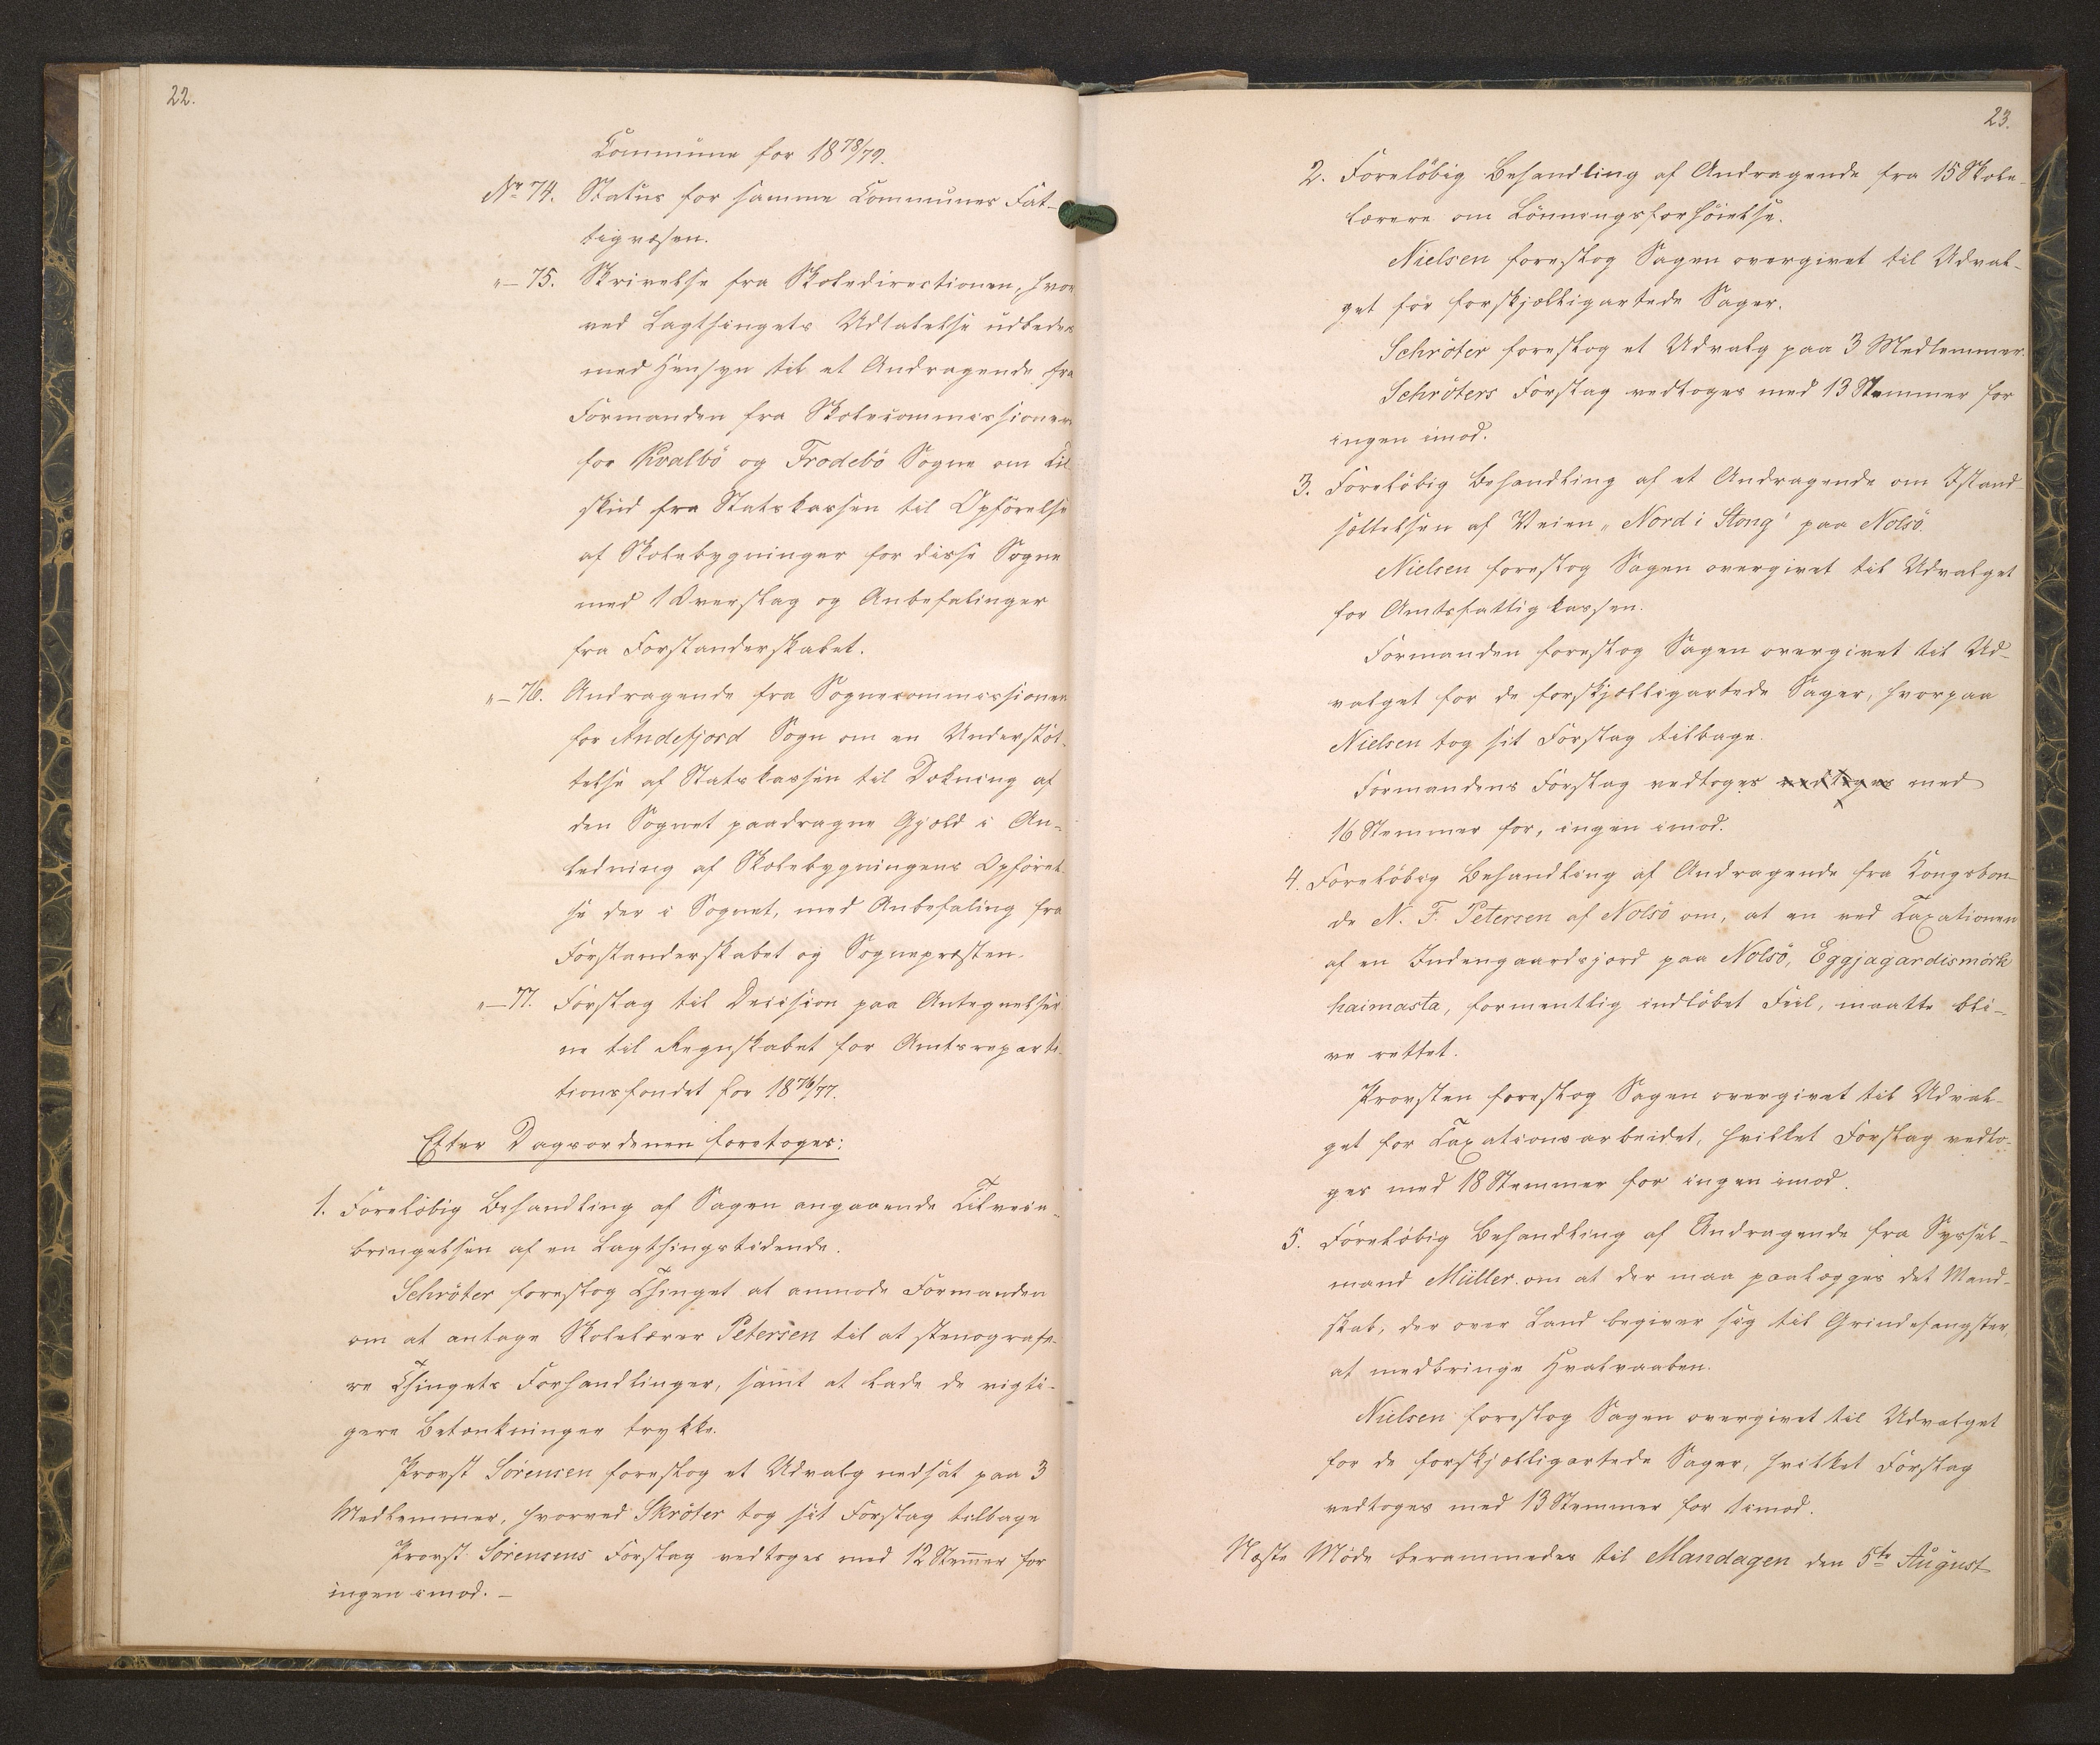 22.
Commune for 18 78/79.
No 74. Status for samme Communes Fat-
tigvæsen.
"— 75. Skrivelse fra Skoledirectionen, hvor
ved Lagthingets Udtalelse udbedes
med Hensyn til et Andragende fra
Formanden fra Skolecommissionen
for Kvalbö og Frodebö Sogne om Til
skud fra Statskassen til Opförelse
af Skolebygninger for disse Sogne
med 1 Overslag og Anbefalinger
fra Forstanderskabet.
"— 76. Andragende fra Sognecommissionen
for Andefjord Sogn om en Understöt-
telse af Statskassen til Dækning af
den Sognet paadragne Gjæld i An-
ledning af Skolebygningens Opförel-
se der i Sognet, med Anbefaling fra
Forstanderskabet og Sognepræsten.
"— 77. Forslag til Decision paa Antegnelser
ne til Regnskabet for Amtsreparti-
tionsfondet for 18 76/77.
Efter Dagsordenen foretoges:
1. Forelöbig Behandling af Sagen angaaende Tilveie-
bringelsen af en Lagthingstidende.
Schröter foreslog Thinget at anmode Formanden
om at antage Skolelærer Petersen til at stenografe-
re Thingets Forhandlinger, samt at lade de vigti-
gere Betænkninger trykke.
Provst Sörensen foreslog et Udvalg nedsat paa 3
Medlemmer, hvorved Skröter tog sit Forslag tilbage
Provst Sörensens Forslag vedtoges med 12 Stemmer for
ingen imod. —
23.
2. Forelöbig Behandling af Andragende fra 15 Skole-
lærere om Lönningsforhöielse.
Nielsen foreslog Sagen overgivet til Udval-
get for forskjælligartede Sager.
Schröter foreslog et Udvalg paa 3 Medlemmer.
Schröters Forslag vedtoges med 13 Stemmer for
ingen imod.
3. Forelöbig Behandling af et Andragende om Istand-
sættelsen af Veien „Nord i Stong" paa Nolsö.
Nielsen foreslog Sagen overgivet til Udvalget
for Amtsfattigkassen.
Formanden foreslog Sagen overgivet til Ud-
valget for de forskjælligartede Sager, hvorpaa
Nielsen tog sit Forslag tilbage.
Formandens Forslag vedtoges vedtoges med
16 Stemmer for, ingen imod.
4. Forelöbig Behandling af Andragende fra Kongsbon-
de N. F. Petersen af Nolsö om, at en ved Taxationen
af en Indengaardsjord paa Nolsö, Eggjagardismörk
haimasta, formentlig indlöbet Feil, maatte bli-
ve rettet.
Provsten foreslog Sagen overgivet til Udval-
get for Taxationsarbeidet, hvilket Forslag vedto-
ges med 18 Stemmer for ingen imod.
5. Forelöbig Behandling af Andragende fra Syssel-
mand Müller om at der maa paalægges det Mand-
skab, der over Land begiver sig til Grindefangster,
at medbringe Hvalvaaben.
Nielsen foreslog Sagen overgivet til Udvalget
for de forskjælligartede Sager, hvilket Forslag
vedtoges med 13 Stemmer for 1 imod.
Næste Möde berammedes til Mandagen den 5te August